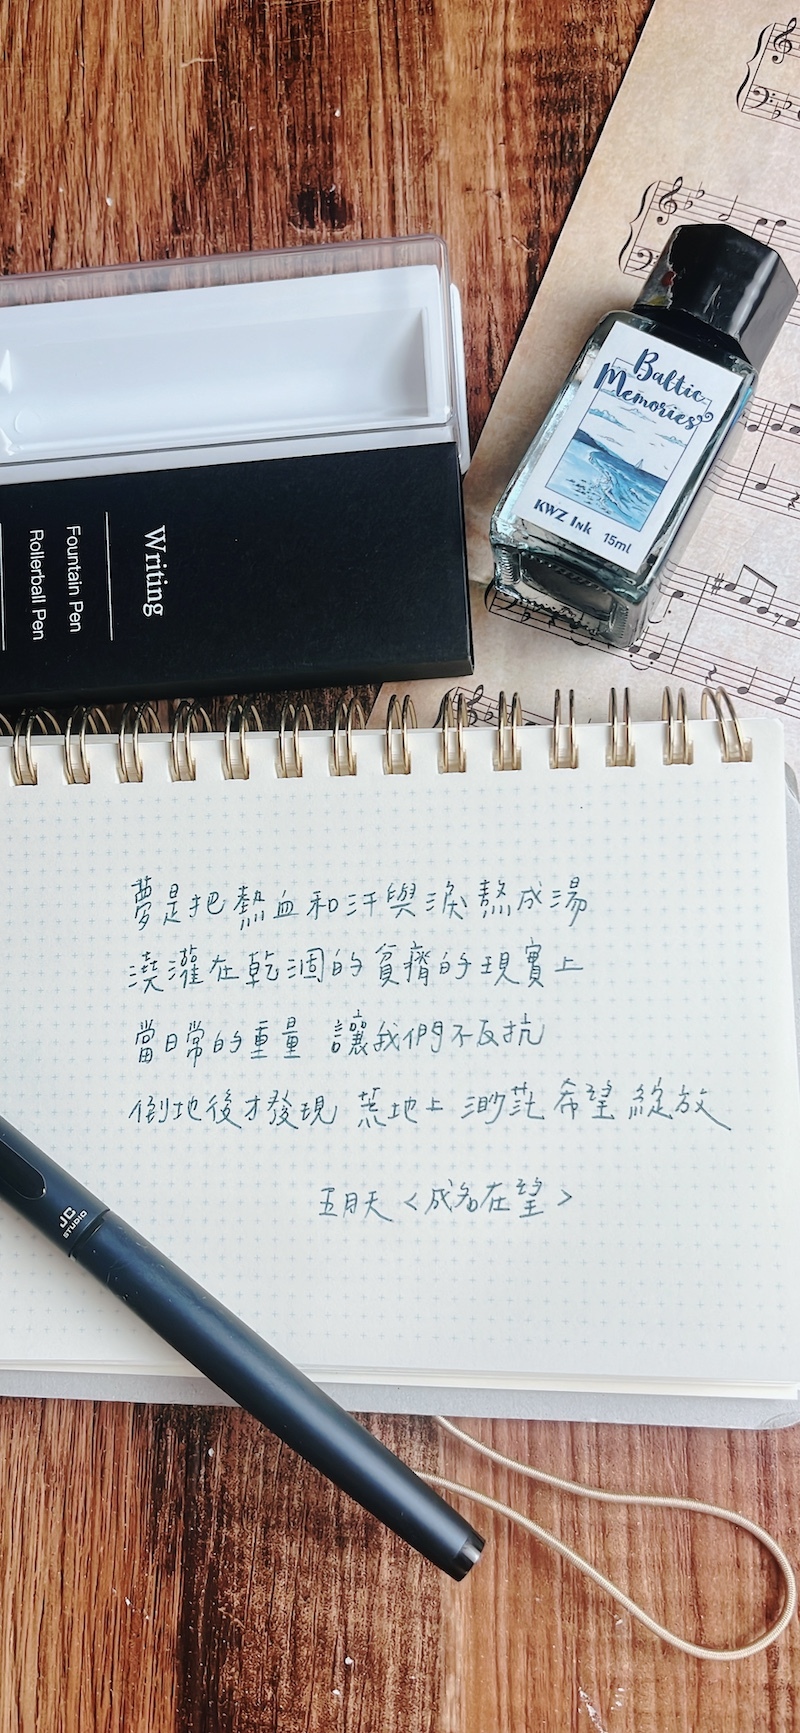 Baltic
Memories
KWZ Ink 15ml
Writing
Fountain Pen
Rollerball Pen
夢是把熱血和汗與淚熬成湯
澆灌在乾涸的貧瘠的現實上
當日常的重量 讓我們不反抗
倒地後才發現 荒地上 渺茫希望綻放
五月天<成名在望>
JC
STUDIO